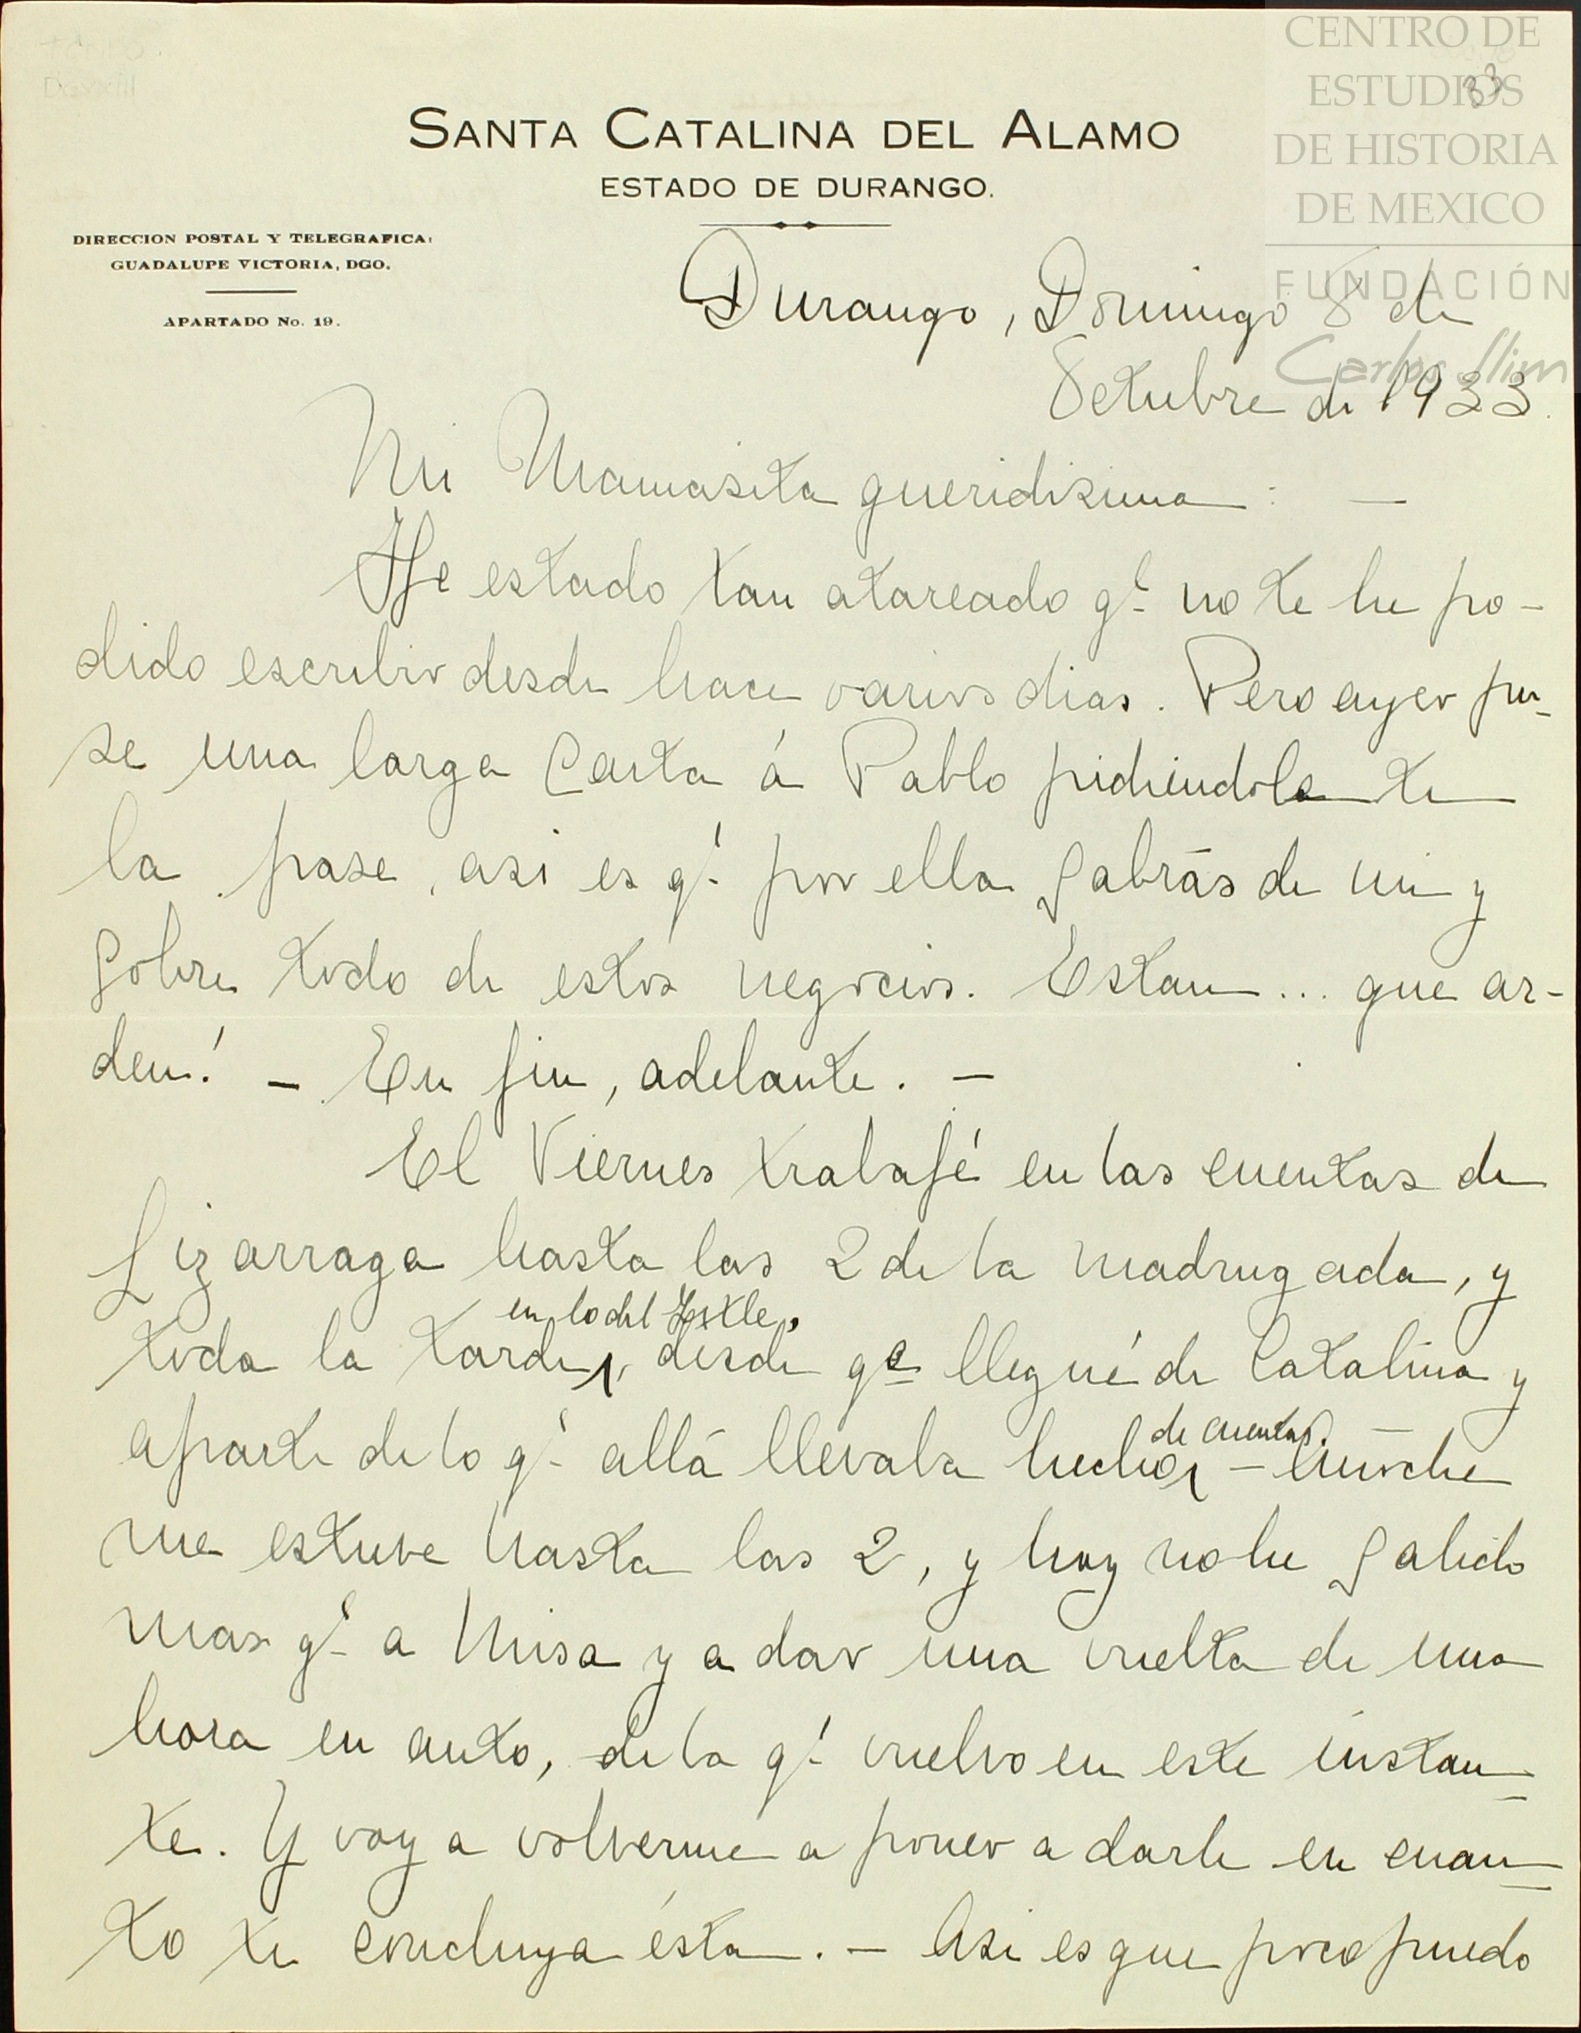 CENTRO DE
ESTUDIOS
DE HISTORIA
DE MEXICO
FUNDACIÓN
Carlos Slim
33
SANTA CATALINA DEL ALAMO
ESTADO DE DURANGO.
DIRECCION POSTAL Y TELEGRAFICA:
GUADALUPE VICTORIA, DGO.
APARTADO No. 19.
Durango, Domingo 8 de
Octubre de 1933.
Mi Mamasita queridisima: —
He estado tan atareado qe no te he po-
dido escribir desde hace varios dias. Pero ayer pu-
se una larga Carta á Pablo pidiendole te
la pase, asi es qe por ella Sabrás de mi y
Sobre todo de estos negocios. Estan... que ar-
den! — En fin, adelante. —
El Viernes trabajé en las cuentas de
Lizarraga hasta las 2 de la madrugada, y
en lo del Ixtle,
toda la tarde, desde qe llegué de Catalina y
de cuentas.
aparte de lo qe allá llevaba hecho — Anoche
me estuve hasta las 2, y hoy no he Salido
mas qe a Misa y a dar una vuelta de una
hora en auto, de la qe vuelvo en este instan-
te. Y voy a volverme a poner a darle en cuan-
to te concluya ésta. — Asi es que poco puedo